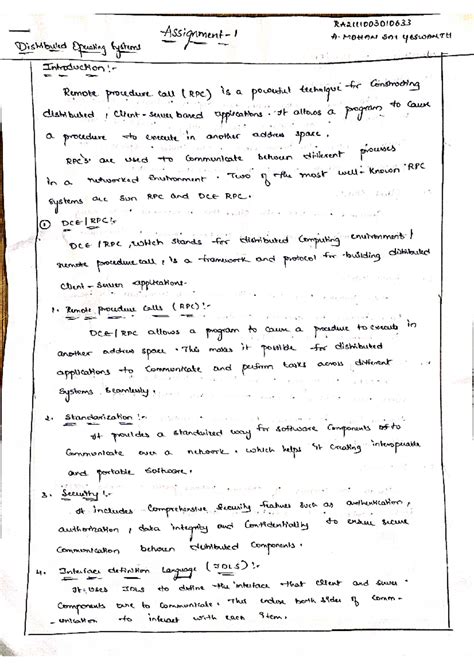 RA2111003010633
Assignment-1
A. MOHAN SAI YESWANTH
Distributed Operating Systems
Introduction :-
Remote procedure call (RPC) is a powerful technique for Constructing
distributed, Client-Server based applications. It allows a program to cause
a procedure to execute in another address space.
RPC's are used to Communicate between different processes
in a networked Environment. Two of the most well-known RPC
Systems are Sun RPC and DCE RPC.
① DCE/RPC :-
DCE/RPC, which stands for distributed Computing environment/
remote procedure call, is a framework and protocol for building distributed
Client-Server applications.
1. Remote procedure calls (RPC) :-
DCE/RPC allows a program to cause a procedure to execute in
another address space. This makes it possible for distributed
applications to Communicate and perform tasks across different
Systems Seamlessly.
2. Standarization :-
It provides a standarized way for software Components to
Communicate over a network. which helps it creating interoperable
and portable software.
3. Security :-
It includes Comprehensive Security features such as authentication,
authorization, data integrity and Confidentiality to ensure secure
Communication between distributed Components.
4. Interface definition Language (IDLS) :-
It uses IDLS to define the interface that client and server
Components use to Communicate. This both sides of comm-
-unication to interact with each item.